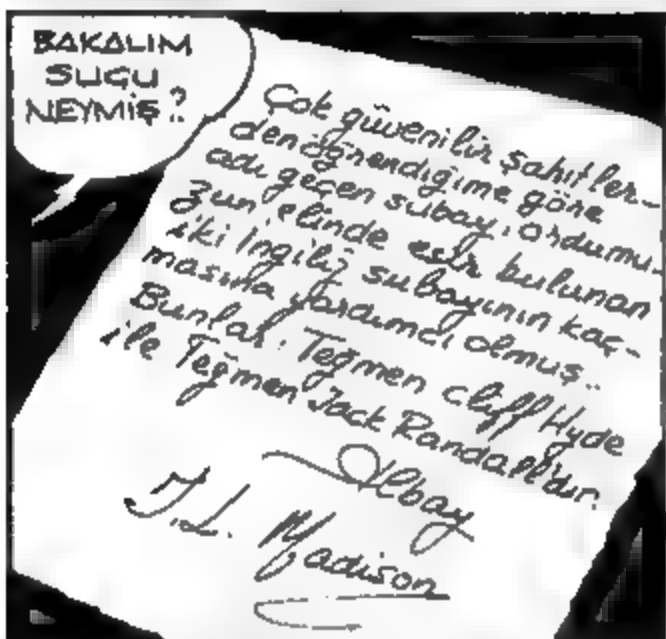 BAKALIM
SUÇU
NEYMİŞ?
Çok güvenilir şahitler-
den öğrendiğime göre
adı geçen subay, ordumu-
zun elinde esir bulunan
iki İngiliz subayının kaç-
masına yardımcı olmuş..
Bunlar: Teğmen Cliff Hyde
ile Teğmen Jack Randall'dır.
Albay
J.L. Madison